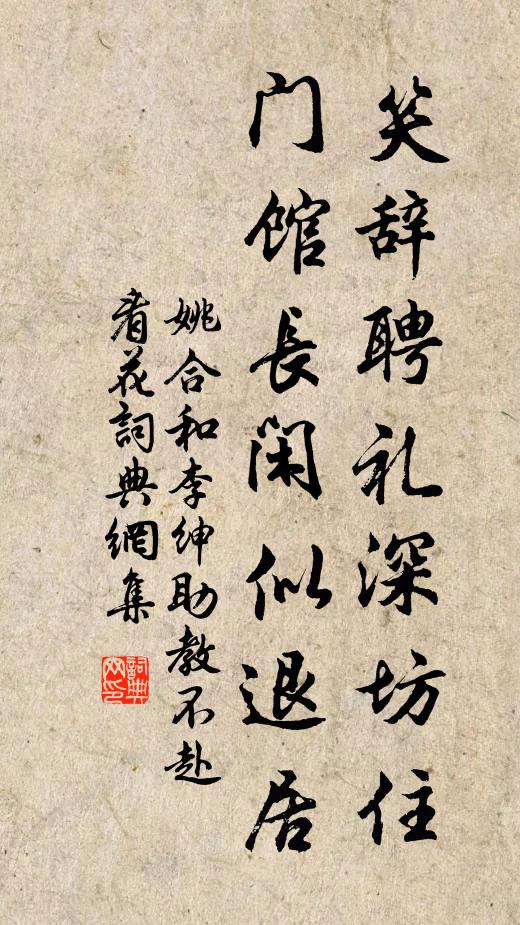 笑辞聘礼深坊住
门馆長闲似退居
姚合和李绅助教不赴
看花詞典網集
詞典网印